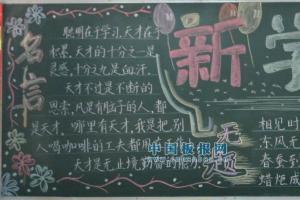 名言
聪明在于学习,天才在于
积累,天才的十分之一是
灵感,十分之九是血汗。
天才不过是不断的
思索,凡是有脑子的人,都
是天才。哪里有天才,我是把别
人喝咖啡的工夫都用在
天才是无止境勤奋的能力。
新学
无题
相见时
东风无
春蚕到
蜡炬成
中国板报网